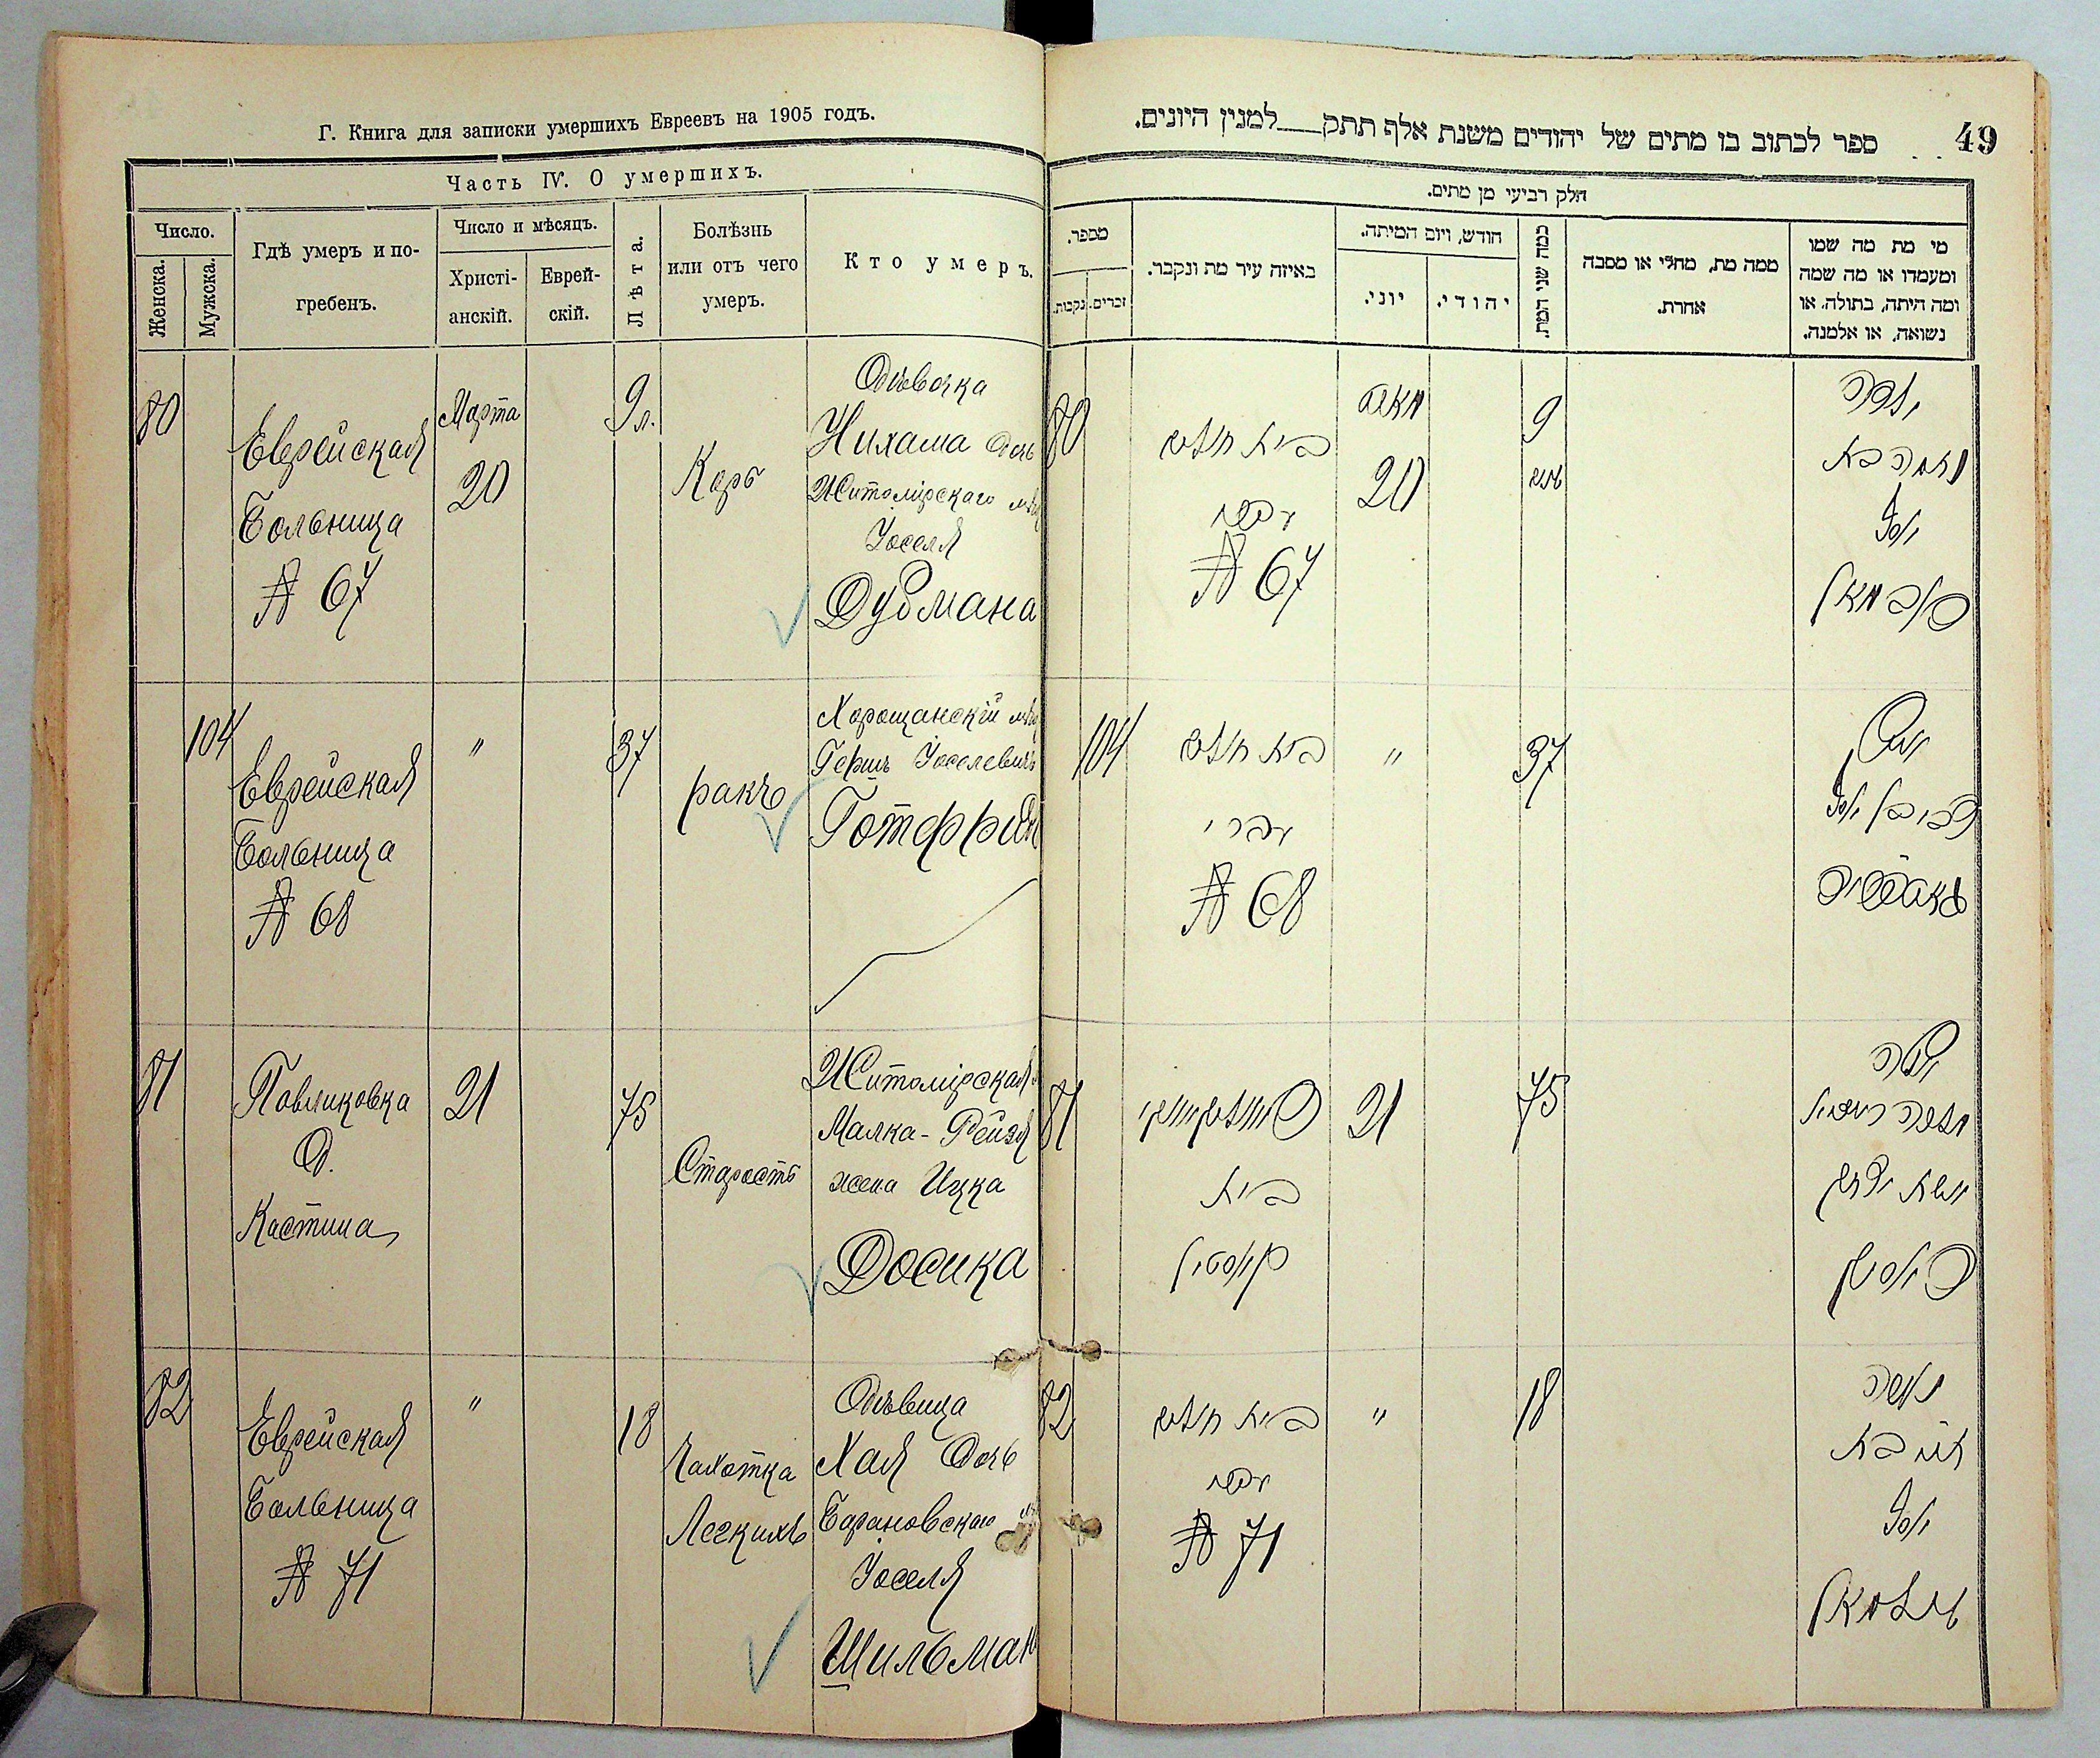 Г. Книга для записки умершихъ Евреевъ на 1905 годъ.
Часть IV. О умершихъ.
Число.
Женска.
Мужска.
Гдѣ умеръ и по-
гребенъ.
Число и мѣсяцъ.
Христі-
анскій.
Еврей-
скій.
Лѣта.
Болѣзнь
или отъ чего
умеръ.
Кто умеръ.
80
Еврейская
Больница
№ 67
Марта
20
9 л.
Корь
Дѣвочка
Нихама дочь
Житомірскаго мѣщ
Іоселя
Дубмана
104
Еврейская
Больница
№ 68
"
37
ракъ
Хорощанскій мѣщ
Гершъ Іоселевичъ
81
Павликовка
д.
Кастина
21
75
Старость
Житомірская
Малка-Рейзя
жена Ицка
Досика
82
Еврейская
Больница
№ 71
"
18
Чахотка
Легкихъ
Дѣвица
Хая дочь
Барановскаго
Іоселя
Шильман
49
ספר לכתוב בו מתים של יהודים משנת אלף תתק___למנין היונים.
חלק רביעי מן מתים.
מספר.
נקבות.
זכרים.
באיזה עיר מת ונקבר.
חודש, ויום המיתה.
יוני.
יהודי.
כמה שני המת.
ממה מת, מחלי או מסבה
אחרת.
מי מת מה שמו
ומעמדו או מה שמה
ומה היתה, בתולה. או
נשואה, או אלמנה.
80
בית חולים
עברי
№ 67
מארט
20
9
שנים
ילדה
נחמה בת
יוסל
דובמאן
104
בית חולים
עברי
№ 68
"
37
איש
הירש בן יוסל
81
פאוולikovקי
בית
קאסטין
21
75
אשה
מלכה רייזיל
אשת איצק
דאסיק
82
בית חולים
עברי
№ 71
"
18
נערה
חיה בת
יוסל
שילמאן